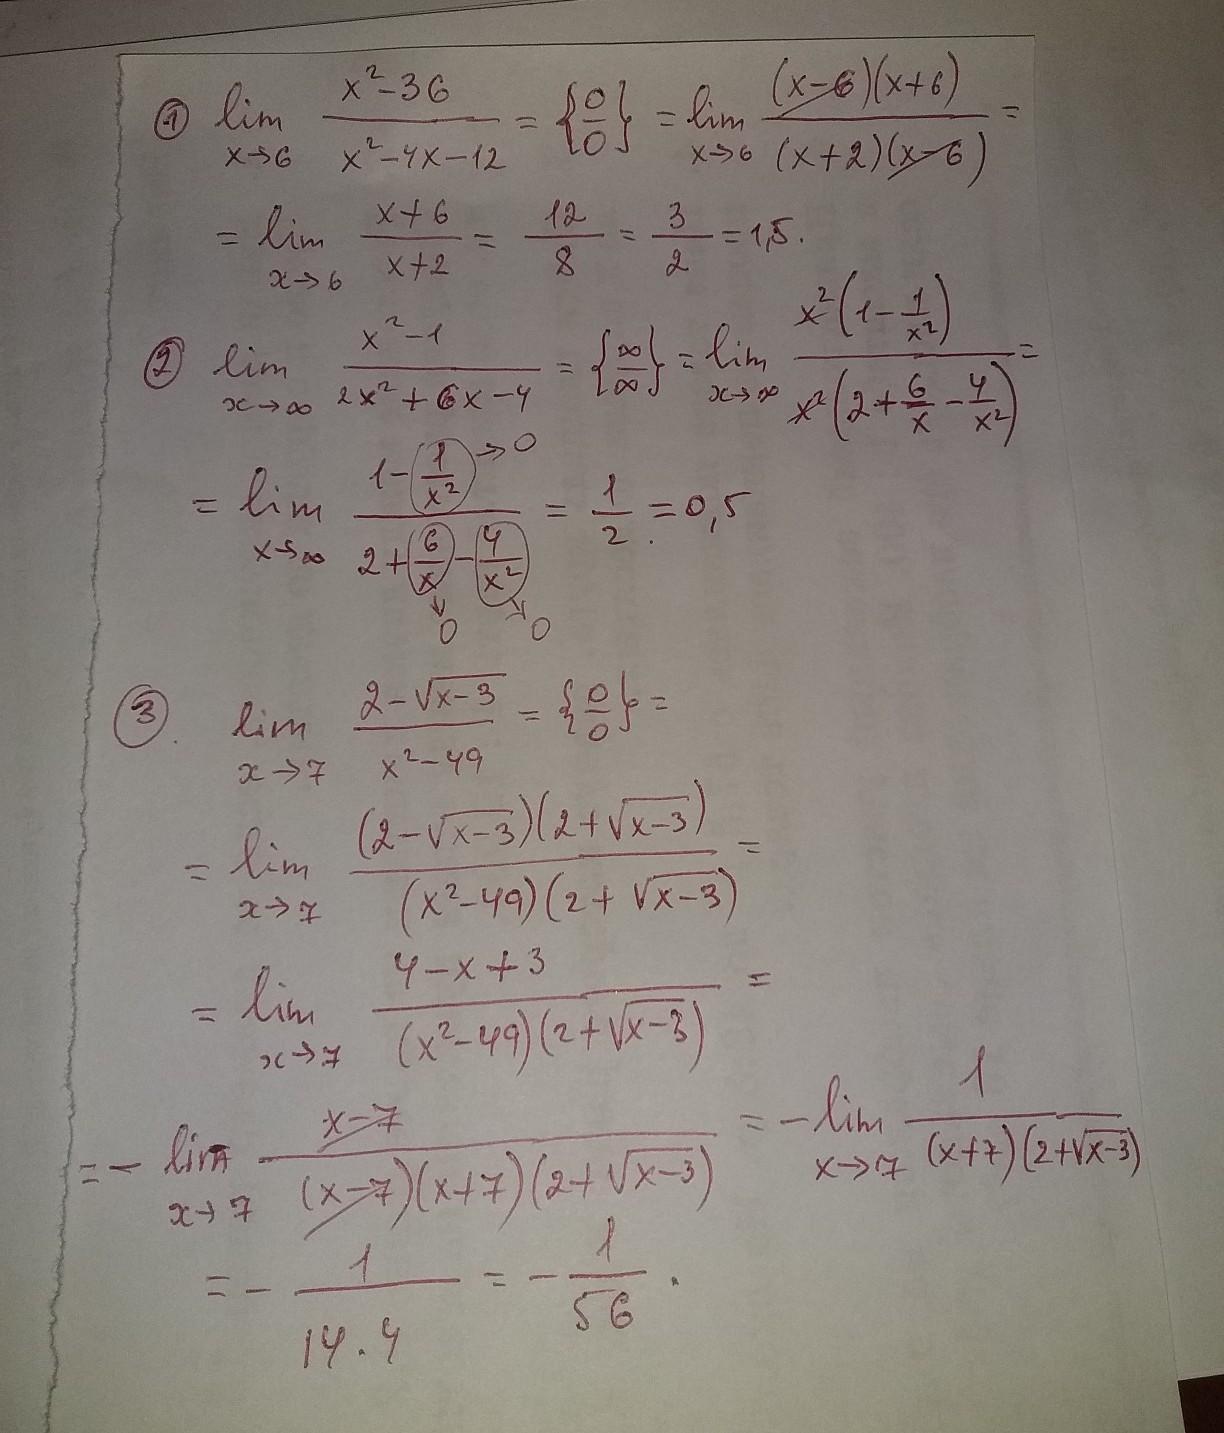 ① lim x→6 (x²-36)/(x²-4x-12) = {0/0} = lim x→6 ((x-6)(x+6))/((x+2)(x-6)) =
= lim x→6 (x+6)/(x+2) = 12/8 = 3/2 = 1,5.
② lim x→∞ (x²-1)/(2x²+6x-4) = {∞/∞} = lim x→∞ (x²(1-1/x²))/(x²(2+6/x-4/x²)) =
= lim x→∞ (1-1/x² →0)/(2+6/x →0 -4/x² →0) = 1/2 = 0,5
③. lim x→7 (2-√(x-3))/(x²-49) = {0/0} =
= lim x→7 ((2-√(x-3))(2+√(x-3)))/((x²-49)(2+√(x-3))) =
= lim x→7 (4-x+3)/((x²-49)(2+√(x-3))) =
= - lim x→7 (x-7)/((x-7)(x+7)(2+√(x-3))) = - lim x→7 1/((x+7)(2+√(x-3)))
= - 1/(14·4) = - 1/56.